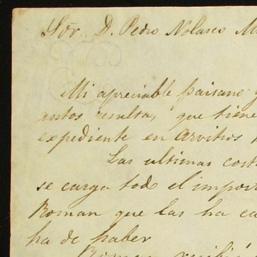 Sör. D. Pedro Nolasco M
Mi apreciable paisano y
antos resultas, que tiene
expediente en Arvitrios
Las ultimas cost
se cargo todo el impor
Roman que las ha ca
ha de haber